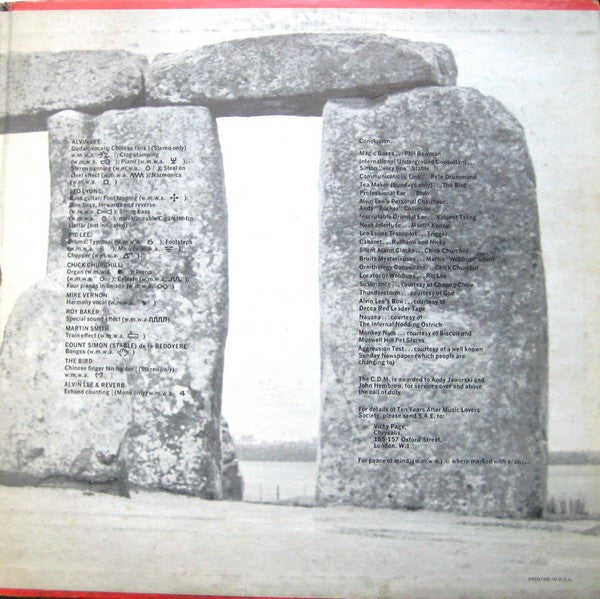 ALVIN LEE:
Guitar; vocals; Chinese fans (Stereo only)
w.m.w.a. ; Clog stamping
(w.m.w.a. ); Piano (w.m.w.a. );
Stereo panning (w.m.w.a. ); Steel on
steel effect (w.m.w.a. ); Harmonica
(w.m.w.a. )
LEO LYONS:
Bass guitar; Foot tapping (w.m.w.a. );
Bow bass, forward and reverse
(w.m.w.a. ); String bass
(w.m.w.a. ); Cigarette tin
clatter (not indicated)
RIC LEE:
Drums; Tympani (w.m.w.a. ); Footsteps
(w.m.w.a.
Chopper (w.m.w.a. )
CHICK CHURCHILL:
Organ (w.m.w.a. ); Piano
(w.m.w.a. ); (w.m.w.a. );
Four pianos in unison (w.m.w.a. )
MIKE VERNON:
Harmony vocal (w.m.w.a. )
ROY BAKER:
Special sound effect (w.m.w.a. )
MARTIN SMITH:
Train effect (w.m.w.a. )
COUNT SIMON (STABLE) de la BEDOYERE:
Bongos (w.m.w.a. )
THE BIRD:
Chinese finger fan holder (Stereo only)
w.m.w.a.
ALVIN LEE & REVERB:
Echoed counting (Mono only) w.m.w.a. 4
Conclusion:
Magic Boxes... Phil Bowman
International Underground Consultant...
Simon 'very fine' Stable
Communications Link... Pete Drummond
Tea Maker (Sundays only)... The Bird
Professional Ear...
Alvin Lee's Personal Chauffeur...
Andy "Rocker"
Inscrutable Oriental Ear... Vincent Tseng
Nose Interlude... Martin Kenna
Leo Lyons Transport... Trigger
Cabaret... and Nicky
Silent Alarm Clocks... Chick Churchill
Bruits Mysterieuses... Martin "Wobbups" Smith
Ornithology Consultant... Chick Churchill
Locator of Wobbups... Ric Lee
Sustenance... courtesy of Cheung Chow
Thunderstorm... courtesy of God
Alvin Lee's Bow... courtesy of
Decca Red Leader Tape
Nausea... courtesy of
The Infernal Nodding Ostrich
Monkey Nuts... courtesy of Biscuit and
Muswell Hill Pet Stores
Aggression Test... courtesy of a well known
Sunday Newspaper (which people are
changing to)
The C.D.M. is awarded to Andy Jaworski and
John Hembrow, for services over and above
the call of duty
For details of Ten Years After Music Lovers
Society, please send S.A.E. to:
Vicky Page,
Chrysalis,
155-157 Oxford Street,
London, W.1.
For peace of mind, (w.m.w.a.) = where marked with a/an...
PRINTED IN U.S.A.